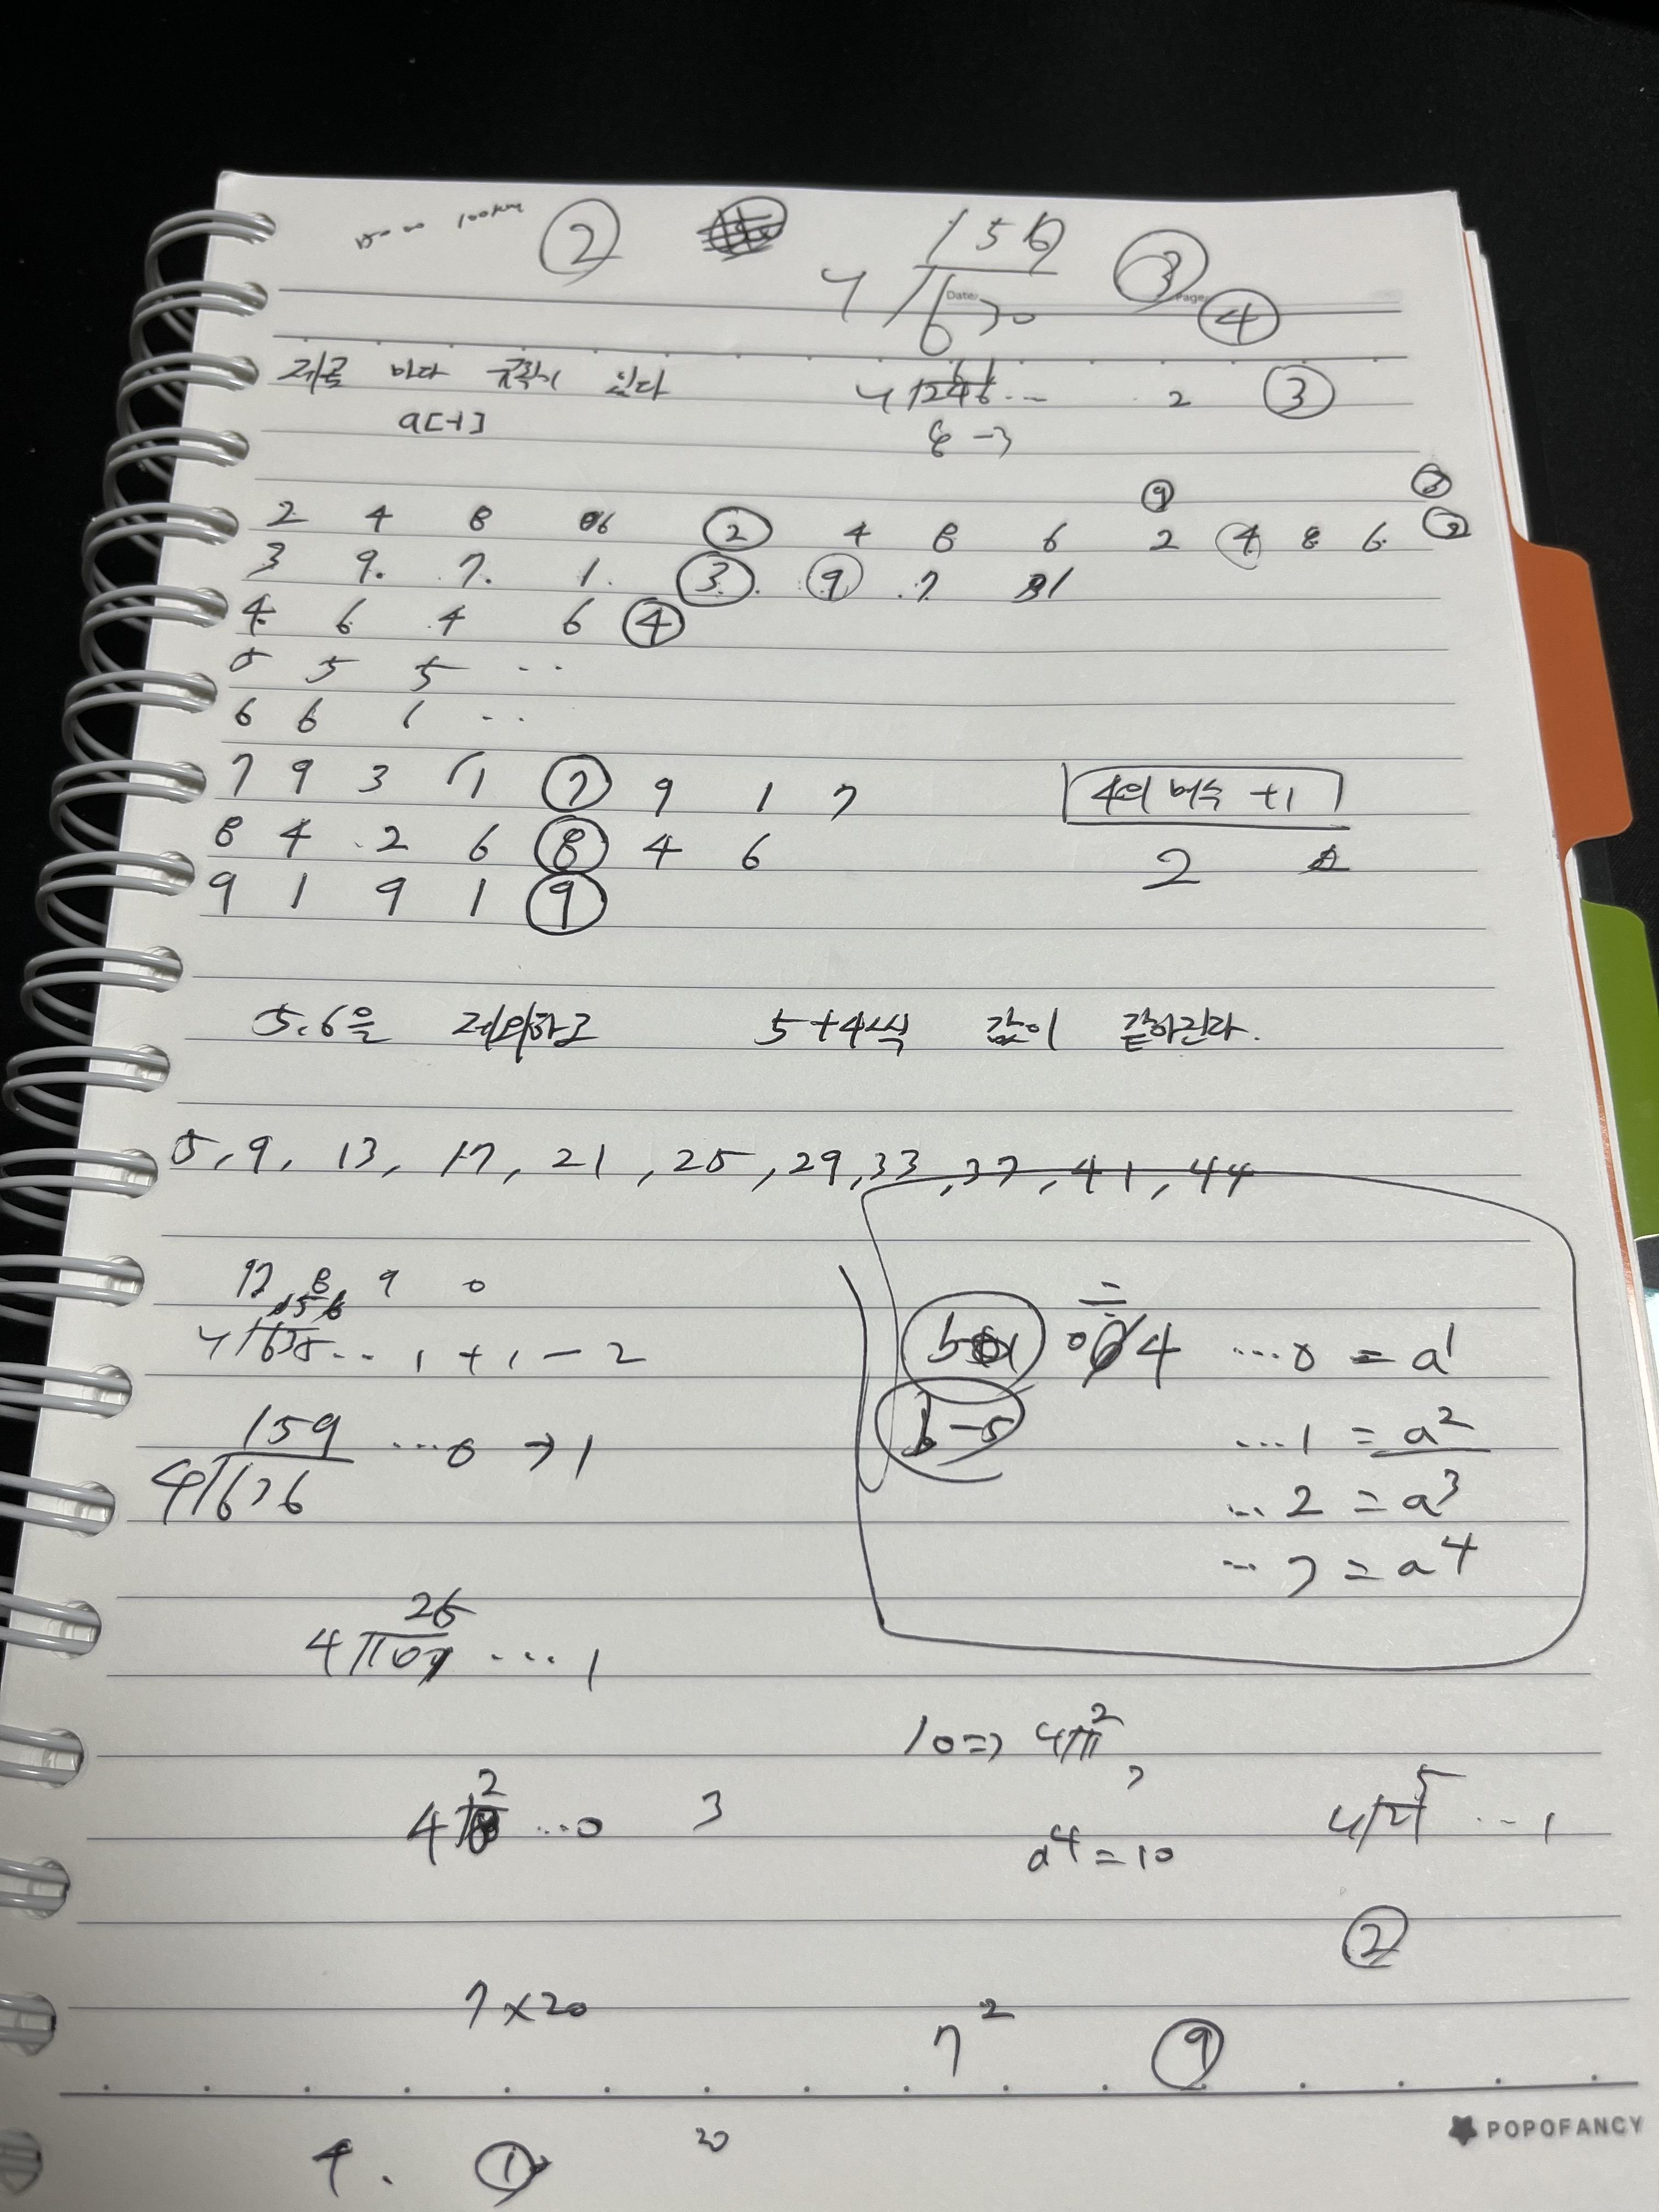 ②
156
③
4 630
Date.
Page.
④
제곱 마다 규칙이 있다
a[-1]
4 1246 ... 2 ③
8 -3
⑨
2 4 8 6 ② 4 8 6 2 ④ 8 6 ②
3 9. 7. 1. ③. ⑨ 7 1
4 6 4 6 ④
5 5 5 ..
6 6 6 ..
7 9 3 1 ⑦ 9 1 7
8 4 2 6 ⑧ 4 6
9 1 9 1 ⑨
4의 배수 +1
2
5, 6을 제외하고 5+4씩 값이 같아진다.
5, 9, 13, 17, 21, 25, 29, 33, 37, 41, 44
8 9 0
156
4 625 ... 1 + 1 - 2
159
4 636 ... 0 → 1
4 ... 0 = a¹
b-5
... 1 = a²
... 2 = a³
... 3 = a⁴
26
4 107 ... 1
10 => 4 11 2
3
2
4 8 ... 0 3
a⁴ = 10
5
4 21 ... 1
②
7 x 20
7² ⑨
POPOFANCY
4. ① 20